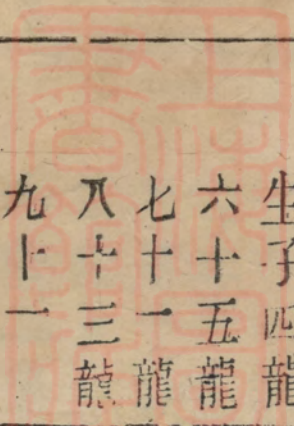 生子四龍
六十五龍
七十一龍
八十三龍
九十一